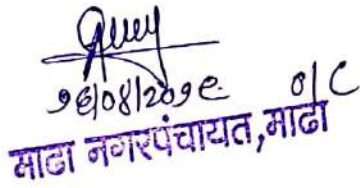 १६/०४/२०१९ o/c
माढा नगरपंचायत,माढा